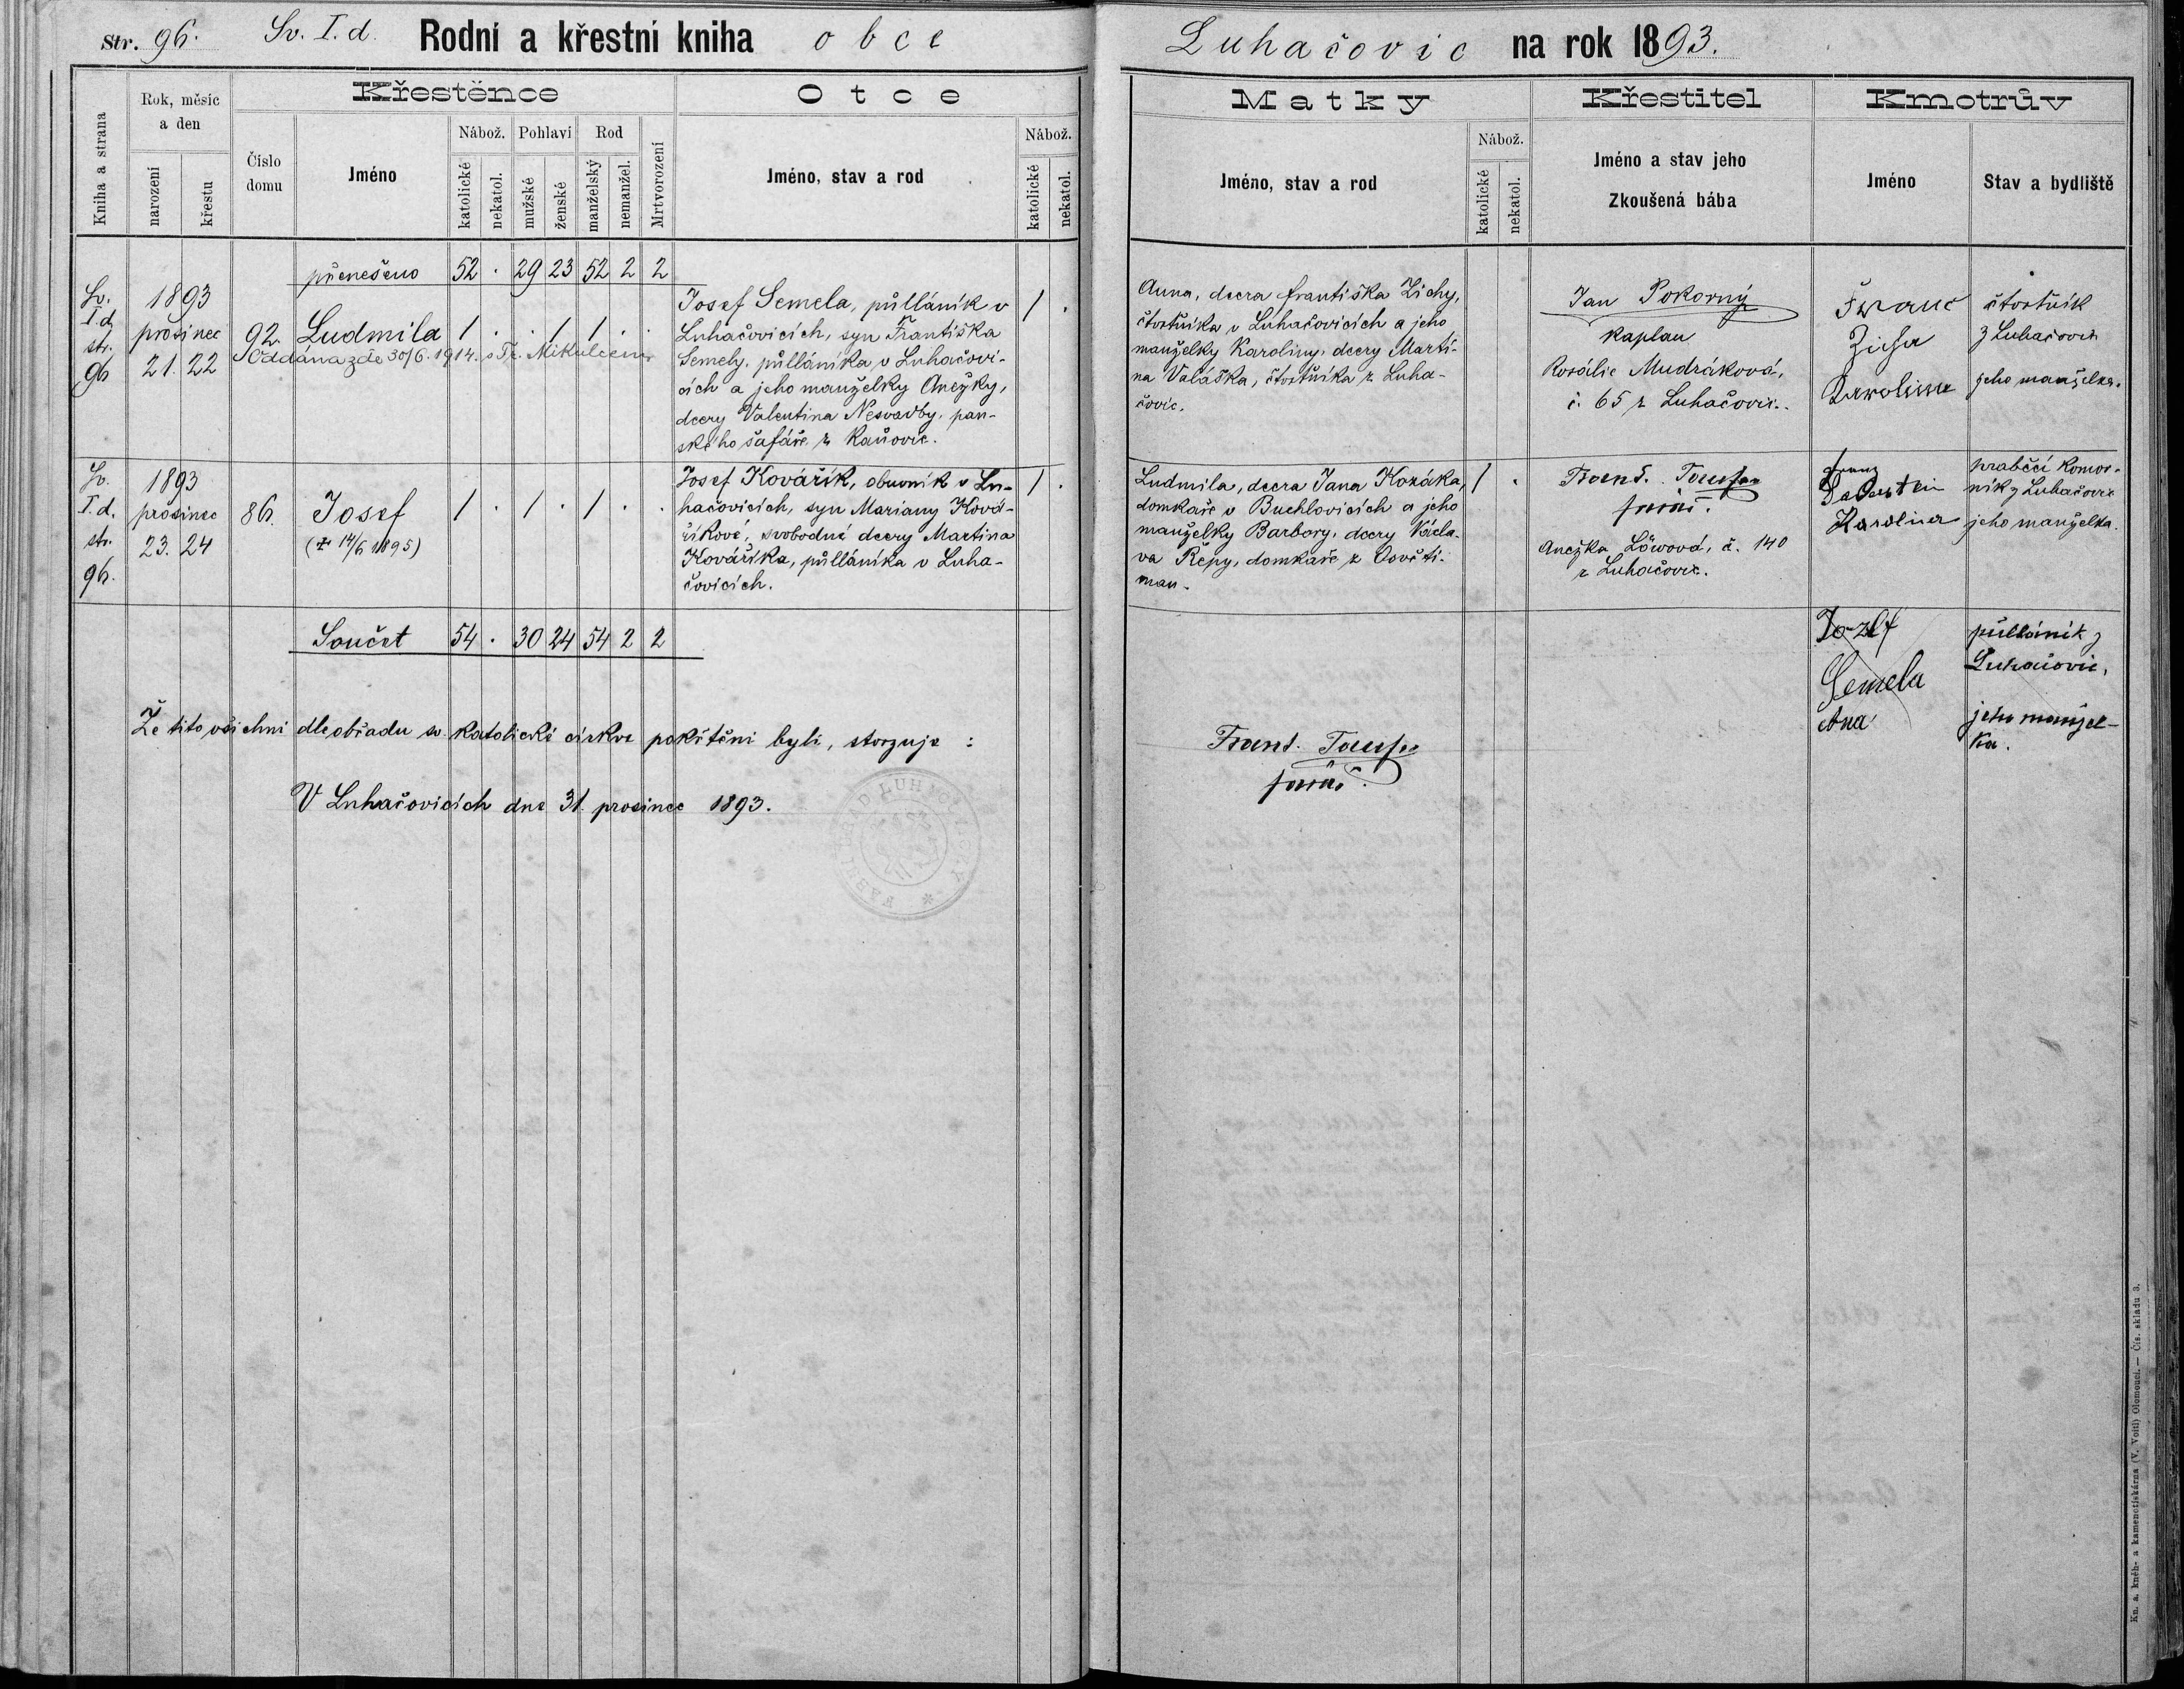 Str. 96. Sv. I. d. Rodní a křestní kniha obce
Kniha a strana
Rok, měsíc a den
narození
křestu
Číslo domu
Křestěnce
Jméno
Nábož.
katolické
nekatol.
Pohlaví
mužské
ženské
Rod
manželský
nemanžel.
Mrtvorození
Otce
Jméno, stav a rod
Nábož.
katolické
nekatol.
přenešeno 52 . 29 23 52 2 2
Sv.
I. d.
str.
96
1893
prosinec
21. 22
92. Ludmila 1 . . 1 1 . .
Oddána zde 30/6. 1914. s Fr. Mikulcem
Josef Semela, půlláník v
Luhačovicích, syn Františka
Semely, půlláníka v Luhačovi-
cích a jeho manželky Anežky,
dcery Valentina Nesvadby, pan-
ského šafáře z Kaňovic.
1 .
Sv.
I. d.
str.
96.
1893
prosinec
23. 24
86. Josef 1 . 1 . 1 . .
(+ 14/6 1895)
Josef Kovářík, obuvník v Lu-
hačovicích, syn Mariany Ková-
říkové, svobodné dcery Martina
Kovaříka, půlláníka v Luha-
čovicích.
1 .
Součet 54 . 30 24 54 2 2
Že tito všichni dle obřadu sv. katolické církve pokřtěni byli, stvrzuje :
V Luhačovicích dne 31. prosince 1893.
Luhačovic na rok 1893.
Matky
Jméno, stav a rod
Nábož.
katolické
nekatol.
Křestitel
Jméno a stav jeho
Zkoušená bába
Kmotrův
Jméno
Stav a bydliště
Anna, dcera Františka Zichy,
čtvrtníka v Luhačovicích a jeho
manželky Karoliny, dcery Marti-
na Valáška, čtvrtníka z Luha-
čovic.
Jan Pokorný
kaplan
Rosálie Mudráková,
č. 65 z Luhačovic.
Franc
Zicha
Karolina
čtvrtník
z Luhačovic
jeho manželka.
Ludmila, dcera Jana Kozáka,
domkaře v Buchlovicích a jeho
manželky Barbory, dcery Václa-
va Řepy, domkaře z Osvěti-
man.
1 .
Frant.
farář.
Anežka Löwová, č. 140
z Luhačovic.
Franz
Karolina
hraběcí komor-
ník z Luhačovic
jeho manželka.
Jozef
Semela
Ana
půlláník z
Luhačovic,
jeho manžel-
ka.
Frant.
farář.
Kn. a. kněh- a kamenotiskárna (V. Voitl) Olomouci. — Čís. skladu 3.